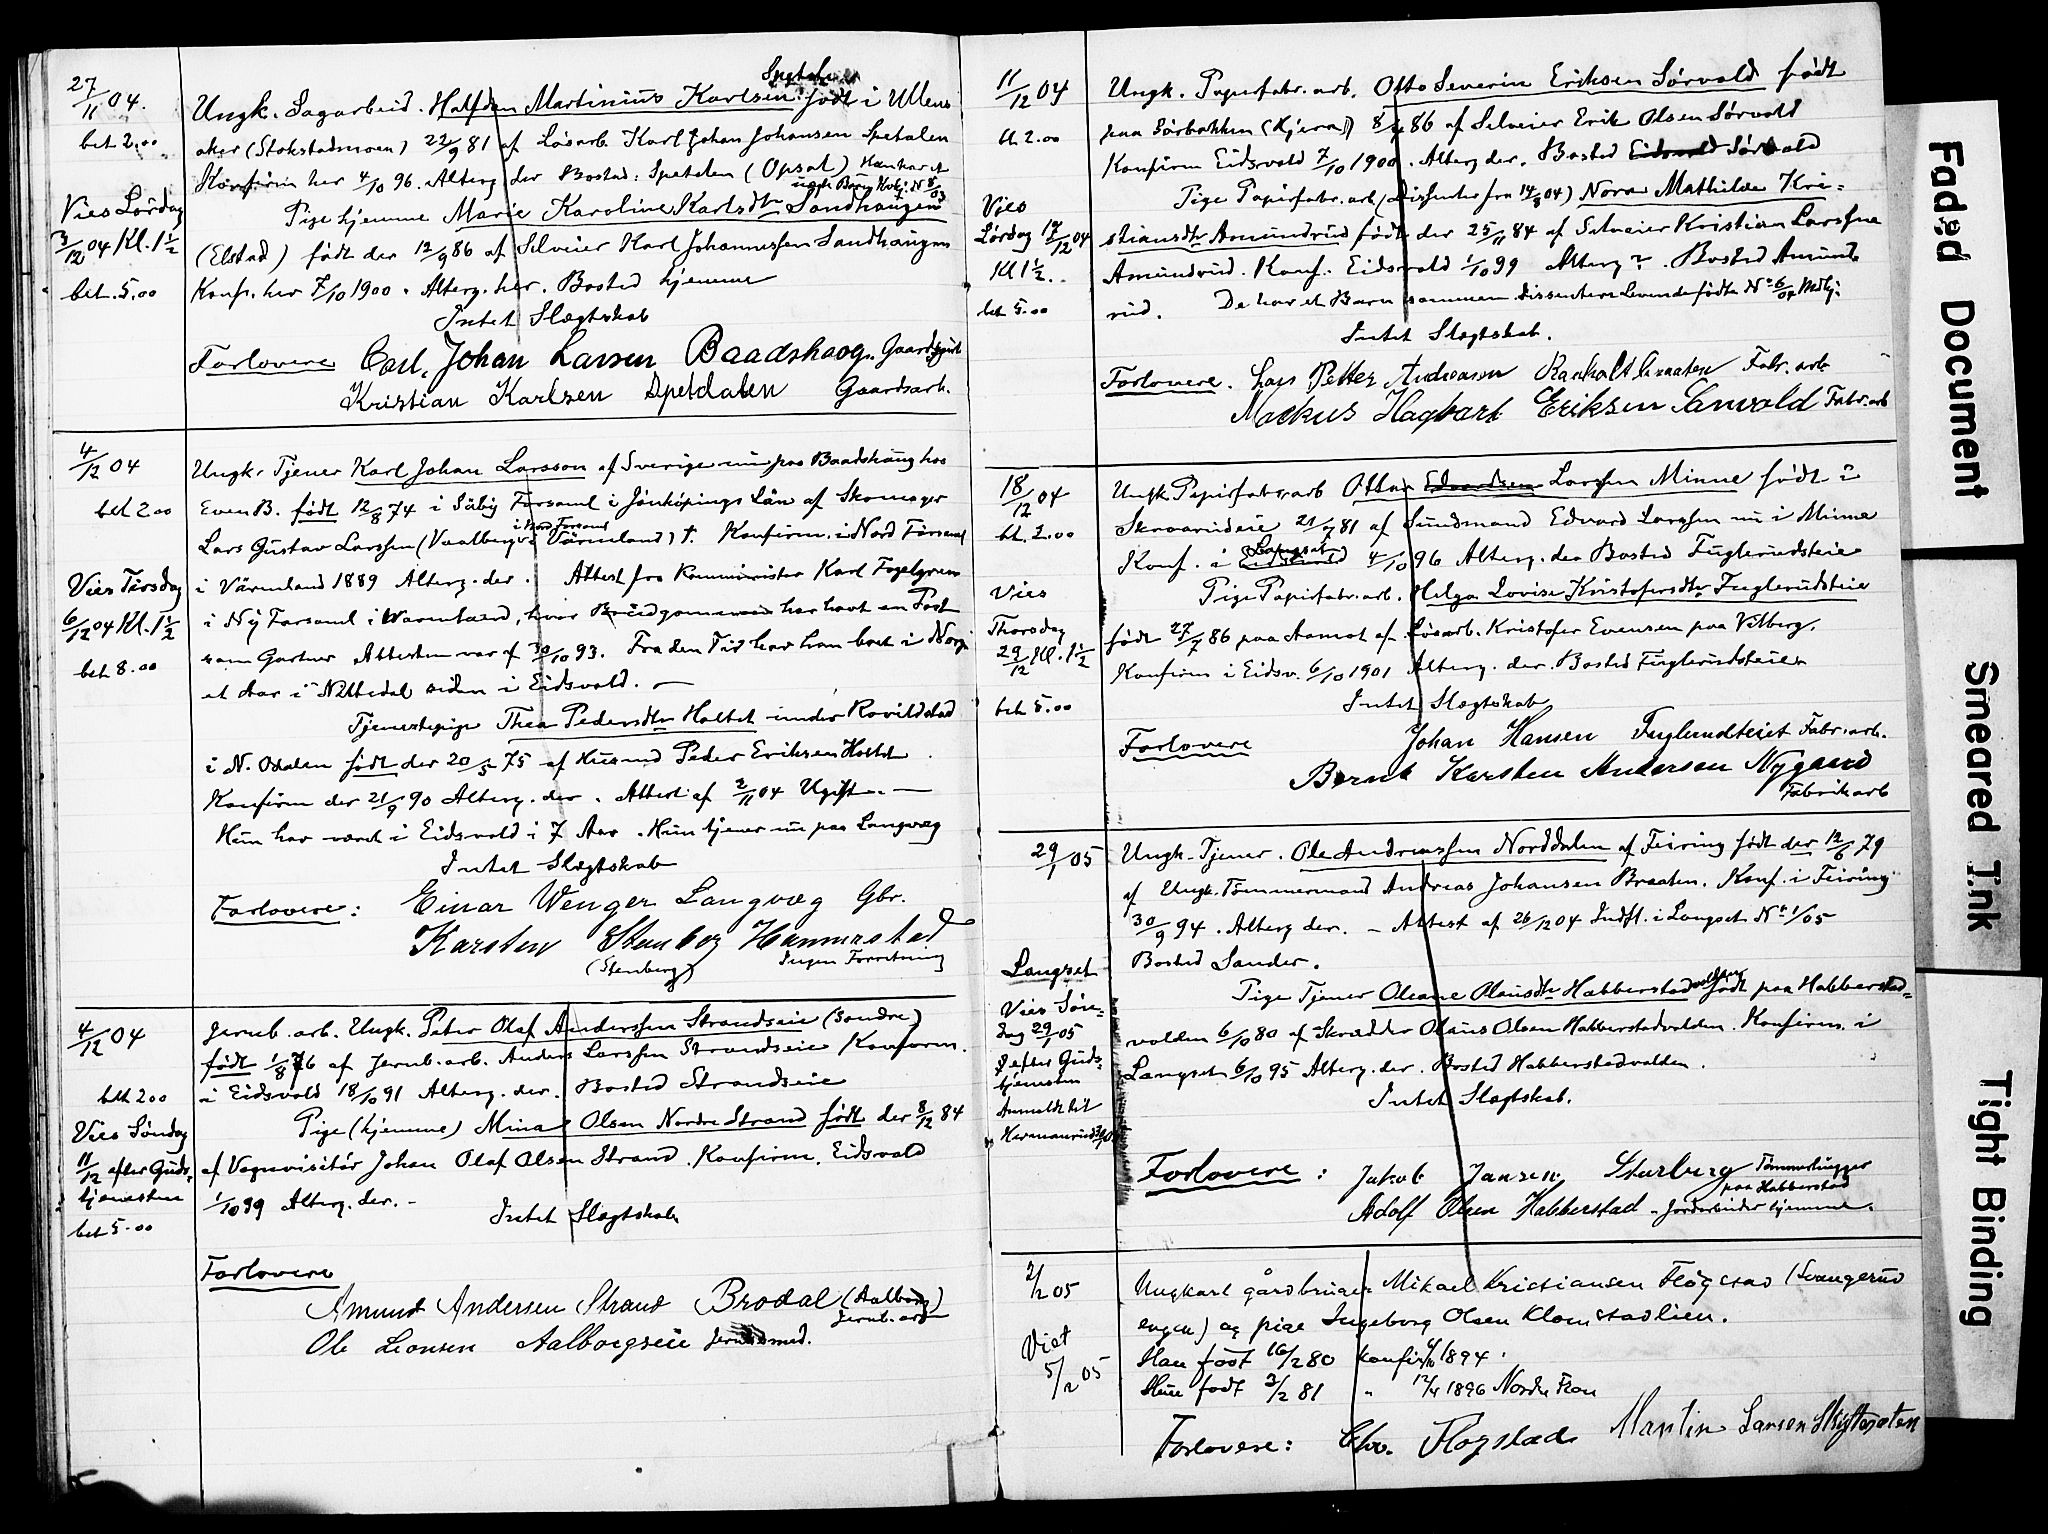 27/11 04.
bet 2.00
Vies Lørdag
3/12 04 Kl. 1½
bet. 5.00
Ungk. Sagarbeid. Halfdan Martinius Karlsen født i Ullens
aker (Stokstadmoen) 22/9 81 af Løsarb. Karl Johan Johansen Spetalen
Konfirm her 4/10 96. Alterg. der Bostad: Spetalen (Opsal) Han har et
Pige hjemme Marie Karoline Karlsdtr Sandhaugen
(Elstad) født der 12/9 86 af Selveier Karl Johannessen Sandhaugen
Konf. her 7/10 1900. Alterg. her. Bosted hjemme
Intet Slægtskab
Forlovere Carl Johan Larsen Baadshaog. Gaardbruk
Kristian Karlsen Spetdalen Gaardsarb.
4/12 04
bet 2.00
Vies Tirsdag
6/12 04 Kl. 1½
bet 8.00
Ungk. Tjener Karl Johan Larsson af Sverige nu paa Baadshaug hos
Even B. født 12/8 74 i Säby Forsaml i Jönköpings Län af Skomager
Lars Gustav Larssen (Vaalberg i Värmland) †. Konfirm. i Nord Forsaml
i Värmland 1889 Alterg. der. Attest fra Komminister Karl Fogelgren
i Ny Forsaml i Warmland, hvor Brudgommen har havt en Post
som Gartner Attesten var af 30/10 93. Fra den Tid har han boet i Norge
et Aar i Nittedal siden i Eidsvold. —
Tjenestepige Thea Pedersdtr Holtet under Rovildstad
i N. Odalen født der 20/5 75 af Husmd Peder Eriksen Holtet
Konfirm der 21/9 90 Alterg. der. Attest af 2/11 04 Ugift. —
Hun har været i Eidsvold i 7 Aar. Hun tjener nu paa Langvæg
Intet Slægtskab
Forlovere: Einar Wenger Langvæg Gbr.
Karsten Stenberg Hammerstad
(Stenberg) Ingen Forretning
4/12 04
bet 2.00
Vies Søndag
11/12 efter Guds-
tjenesten
bet 5.00
Jernb. arb. Ungk. Peter Olaf Anderssen Strandseie (Søndre)
født 1/8 76 af Jernb. arb. Anders Larssen Strandseie Konfirm.
i Eidsvold 18/10 91 Alterg. der. Bosted Strandseie
Pige (hjemme) Mina Olsen Nordre Strand født der 8/12 84
af Vognvisitør Johan Olaf Olsen Strand. Konfirm. Eidsvold
1/10 99 Alterg. der. —
Intet Slægtskab
Forlovere
Amund Andersen Strand Brodal (Aalborg)
Jernb. arb
Ole Leonsen Aalborgseie
11/12 04
bt 2.00
Vies
Lørdag 17/12 04
Kl 1½.
bet 5.00
Ungk. Papirfabr. arb. Otto Severin Eriksen Sørvold født
paa Sørbakken (Kjera) 8/4 86 af Selveier Erik Olsen Sørvold
Konfirm Eidsvold 7/10 1900. Alterg der. Bosted Sørvold
Pige Papirfabr. arb (Dissenter fra 14/9 04) Nora Mathilde Kri-
stiansdtr Amundrud født der 25/11 84 af Selveier Kristian Larssen
Amundrud. Konf. Eidsvold 1/10 99 Alterg?. Bosted Amund
rud. De har et Barn sammen Dissenteres Levendefødte No 6/04 Mdkj:
Intet Slægtskab.
Forlovere. Lars Petter Andreasen Fabr. arb
Markus Hagbart Eriksen Sørvold Fabr. arb
18/12 04
bt. 2.00
Vies
Thorsdag
29/12 Kl. 1½
bet 5.00
Ungk Papirfabr. arb Otto Edvardsen Larssen Minne født i
Skraarudeie 21/7 81 af Sundmand Edvard Larssen nu i Minne
Konf. i Langset 4/10 96 Alterg. der Bosted Fuglerudsteie
Pige Papirfabr. arb. Helga Lovise Kristofersdtr Fuglerudsteie
født 27/7 86 paa Aamot af Løsarb. Kristofer Evensen paa Vilberg.
Konfirm i Eidsv. 6/10 1901 Alterg. der. Bosted Fuglerudsteie
Intet Slægtskab
Forlovere Johan Hansen Fuglerudteiet Fabr. arb.
Bernt Karsten Andersen Nygaard
Fabrikarb
29/1 05
Langset
Vies Søn-
dag 29/1 05
efter Guds-
tjenesten
Anmeldt til
Ungk. Tjener. Ole Andreassen Norddalen af Feiring født der 12/6 79
af Ungk. Tømmermand Andreas Johansen Braaten. Konf. i Feiring
30/9 94. Alterg der. — Attest af 26/12 04 Indft. i Langset No 1/05
Bosted Sander.
Pige Tjener Oleane Olausdtr Habberstad født paa Habberstad-
volden 6/10 80 af Skrædder Olaus Olsen Habberstadvolden. Konfirm. i
Langset 6/10 95 Alterg. der. Bosted Habberstadvolden.
Intet Slægtskab.
Forlovere: Jakob Jansen Sturberg Tømmerhugger
paa Habberstad
Adolf Olsen Habberstad. Jordarbeider hjemme.
2/2 05
Viet
5/2 05
Ungkarl gårdbruger Mikael Kristiansen Fløgstad (Svangerud
engen) og pige Ingeborg Olsen Klomstadlien.
Han født 16/2 80 konfir 1894.
Hun født 3/2 81 " 12/4 1896 Nordre Fron
Forlovere: Chr. Flogstad Martin Larsen
Faded Document
Smeared Ink
Tight Binding